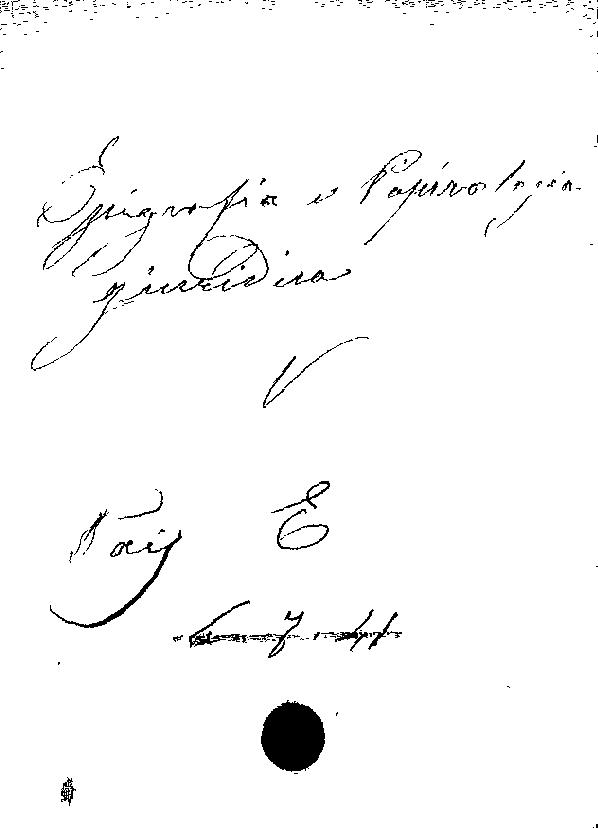 Epigrafia e Papirologia
giuridica
V
Pais E